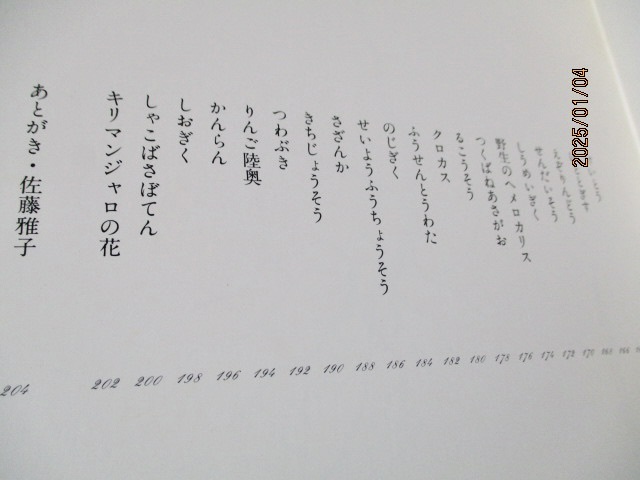 えぞりんどう
せんだいそう
しうめいぎく
野生のヘメロカリス
つくばねあさがお
るこうそう
クロカス
ふうせんとうわた
のじぎく
せいようふうちょうそう
さざんか
きちじょうそう
つわぶき
りんご陸奥
かんらん
しおぎく
しゃこばさぼてん
キリマンジャロの花
あとがき・佐藤雅子
204 202 200 198 196 194 192 190 188 186 184 182 180 178 176 174 172 170 168 166
2025/01/04